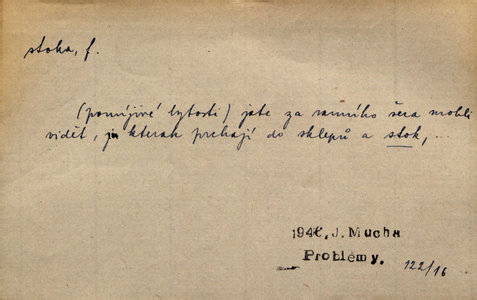 stoka, f.
(pomíjivé bytosti) jste za ranního šera mohli
vidět, kterak prchají do sklepů a stok,...
1946, J. Mucha
Problémy. 122/16